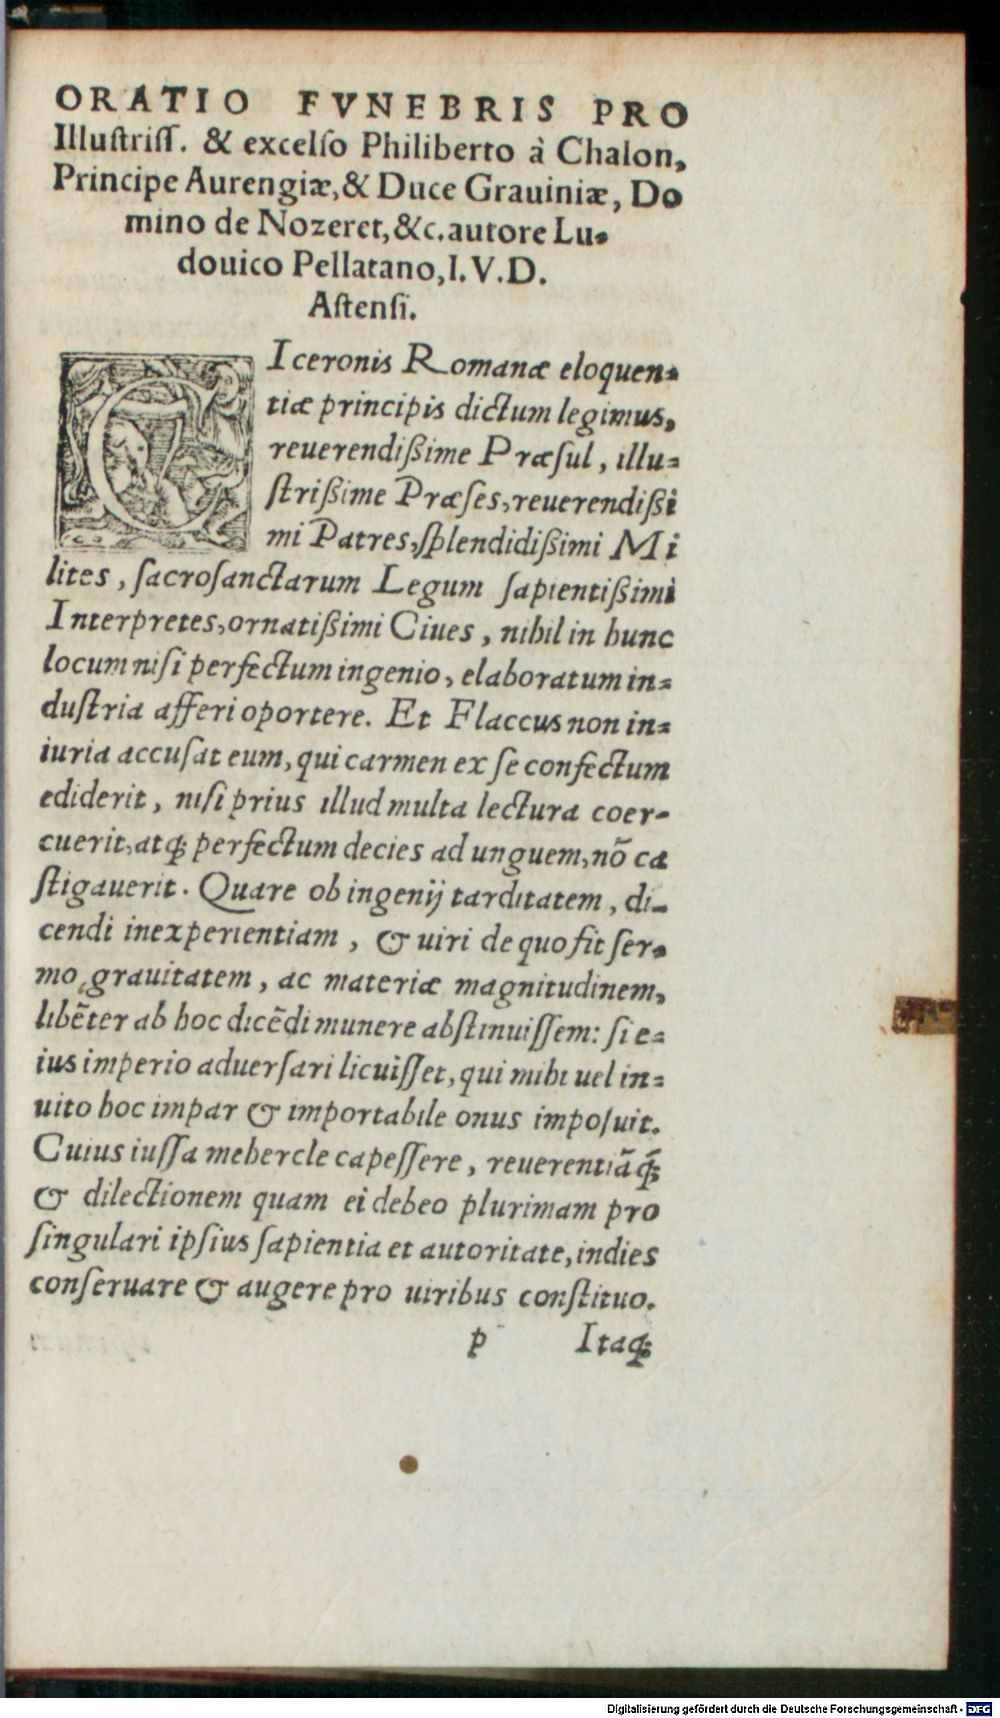 ORATIO FVNEBRIS PRO
Illustriſſ. & excelſo Philiberto à Chalon,
Principe Aurengiæ, & Duce Grauiniæ, Do
mino de Nozeret, &c. autore Lu-
douico Pellatano, I. V. D.
Astenſi.
CIceronis Romanæ eloquen-
tiæ principis dictum legimus,
reuerendißime Præſul, illu-
ſtrißime Præſes, reuerendißi
mi Patres, ſplendidißimi Mi
lites, ſacroſanctarum Legum ſapientißimi
Interpretes, ornatißimi Ciues, nihil in hunc
locum niſi perfectum ingenio, elaboratum in-
duſtria afferi oportere. Et Flaccus non in-
iuria accuſat eum, qui carmen ex ſe confectum
ediderit, niſi prius illud multa lectura coer-
cuerit, atq; perfectum decies ad unguem, nõ ca
ſtigauerit. Quare ob ingenij tarditatem, di-
cendi inexperientiam, & uiri de quo fit ſer-
mo grauitatem, ac materiæ magnitudinem,
libẽter ab hoc dicẽdi munere abſtinuiſſem: ſi e-
ius imperio aduerſari licuiſſet, qui mihi uel in-
uito hoc impar & importabile onus impoſuit.
Cuius iuſſa mehercle capeſſere, reuerentiãq́;
& dilectionem quam ei debeo plurimam pro
ſingulari ipſius ſapientia et autoritate, indies
conſeruare & augere pro uiribus conſtituo.
p Itaq;
Digitalisierung gefördert durch die Deutsche Forschungsgemeinschaft - DFG